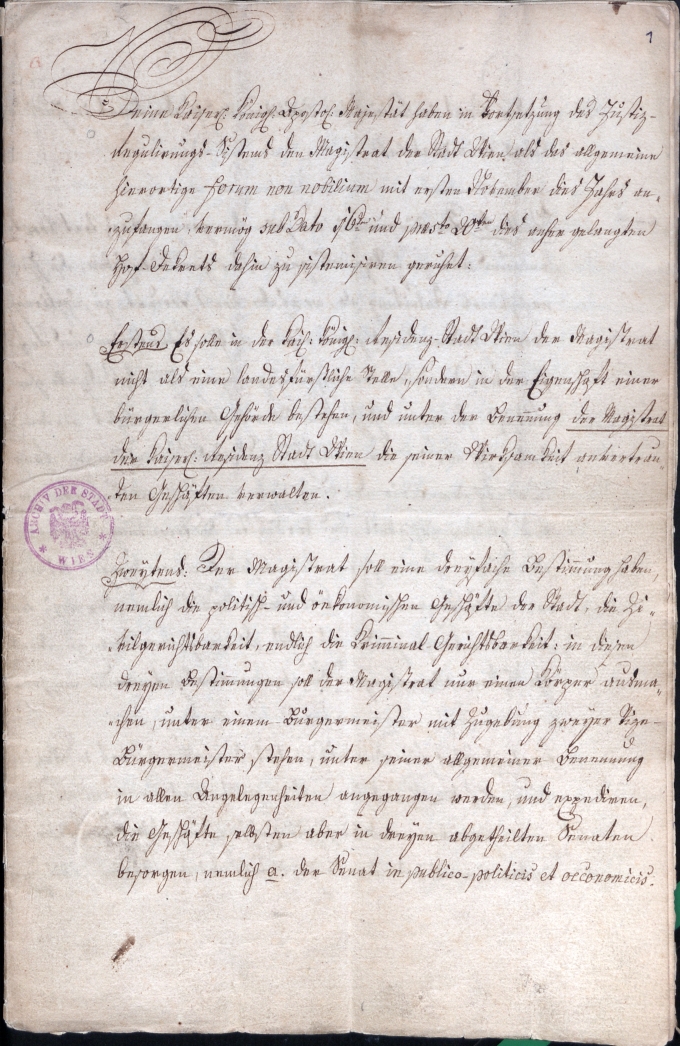 1
Seine Kaiserl: Königl: Apostol: Majestät haben in Fortsetzung des Justiz-
regulirungs-Sistems den Magistrat der Stadt Wien als das allgemeine
hierortige Forum non nobilium mit ersten November dies Jahrs an-
zufangen, vermög sub Dato 16ten und praesto 20ten dies anher gelangten
Hof-Dekrets dahin zu sistemisiren geruhet:
Erstens, Es solle in der Kais: Königl: Residenz-Stadt Wien der Magistrat
nicht als eine landesfürstliche Stelle, sondern in der Eigenschaft einer
bürgerlichen Behörde bestehen, und unter der Benennung der Magistrat
der Kaiserl: Residenz Stadt Wien die seiner Wirksamkeit anvertrau-
ten Geschäften verwalten.
ARCHIV DER STADT
WIEN
Zweytens: Der Magistrat soll eine dreyfache Bestimmung haben,
nemlich die politisch- und ökonomischen Geschäfte der Stadt, die Zi-
vilgerichtsbarkeit, endlich die Kriminal Gerichtsbarkeit: in diesen
dreyen Bestimungen soll der Magistrat nur einen Körper ausma-
chen, unter einem Bürgermeister mit Zugebung zweyer Vize-
Bürgermeister stehen, unter seiner allgemeiner Benennung
in allen Angelegenheiten angegangen werden, und expediren,
die Geschäfte selbsten aber in dreyen abgetheilten Senaten
besorgen, nemlich a. der Senat in publico-politicis et oeconomicis.